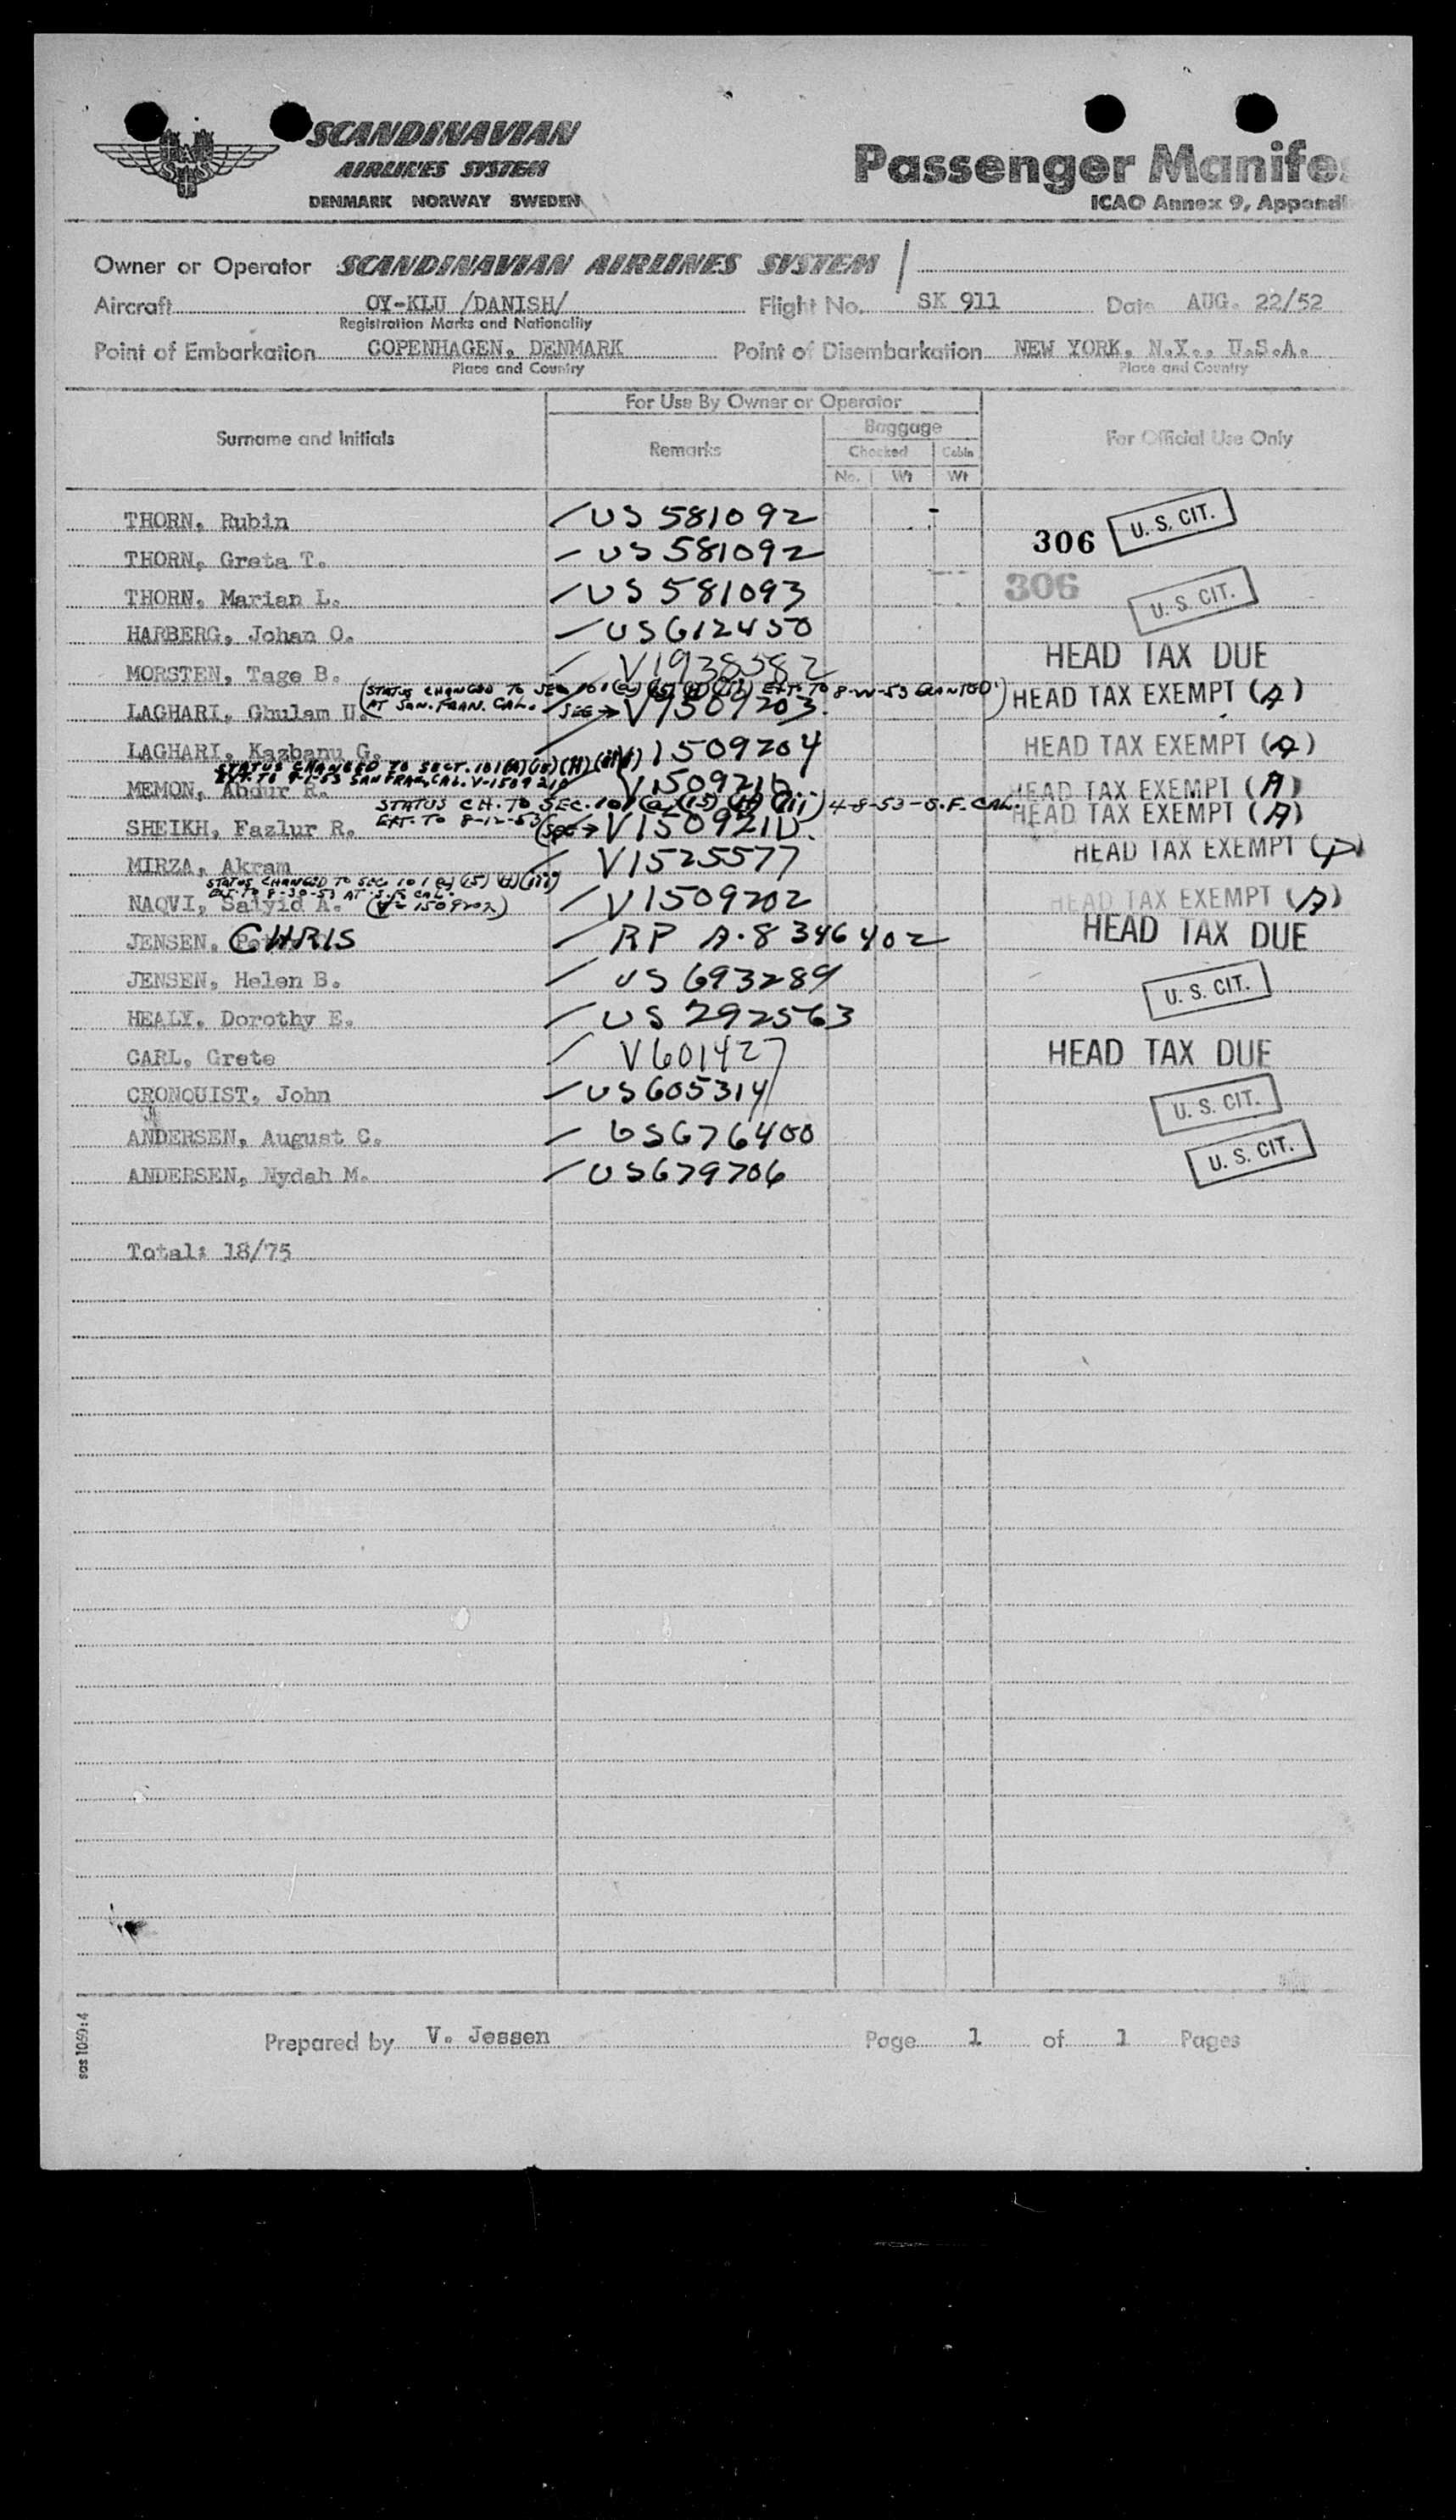 SCANDINAVIAN
AIRLINES SYSTEM
DENMARK NORWAY SWEDEN
Passenger Manifes
ICAO Annex 9, Appendi
Owner or Operator SCANDINAVIAN AIRLINES SYSTEM /
Aircraft OY-KLU /DANISH/ Flight No. SK 911 Date AUG. 22/52
Registration Marks and Nationality
Point of Embarkation COPENHAGEN, DENMARK Point of Disembarkation NEW YORK, N.Y., U.S.A.
Place and Country Place and Country
For Use By Owner or Operator
Surname and Initials Remarks Baggage For Official Use Only
Checked Cabin
No. Wt Wt
THORN, Rubin US 581092 U. S. CIT.
THORN, Greta T. US 581092 306
THORN, Marian L. US 581093 306 U. S. CIT.
HARBERG, Johan O. US 612450
MORSTEN, Tage B. V1938582 HEAD TAX DUE
(STATUS CHANGED TO SEC 101(a)(15)(H)(iii) EXT. TO GRANTED.) HEAD TAX EXEMPT (A)
AT SAN. FRAN. CAL.
LAGHARI, Ghulam U. SEE → V1509203
LAGHARI, Kazbanu G. V1509204 HEAD TAX EXEMPT (A)
STATUS CHANGED TO SECT. 101(A)(15)(H)(iii)
EXT. TO SAN FRAN, CAL. V-1509210
MEMON, Abdur R. V1509210 HEAD TAX EXEMPT (A)
STATUS CH. TO SEC. 101(a)(15)(H)(iii) 4-8-53-S.F. CAL. HEAD TAX EXEMPT (A)
EXT. TO 8-12-53
SHEIKH, Fazlur R. (SEE → V150921
MIRZA, Akram V1525577 HEAD TAX EXEMPT
STATUS CHANGED TO SEC 101(a)(15)(H)(iii)
EXT. TO 8-30-53 AT S.F. CAL.
NAQVI, Saiyid A. (V-1509202) V1509202 HEAD TAX EXEMPT (A)
JENSEN, CHRIS RP A-8 346 402 HEAD TAX DUE
JENSEN, Helen B. US 693289 U. S. CIT.
HEALY, Dorothy E. US 292563
CARL, Grete V601427 HEAD TAX DUE
CRONQUIST, John US 605314 U. S. CIT.
ANDERSEN, August C. US676400 U. S. CIT.
ANDERSEN, Nydah M. US679706
Total: 18/75
sas 1059:4
Prepared by V. Jessen Page 1 of 1 Pages